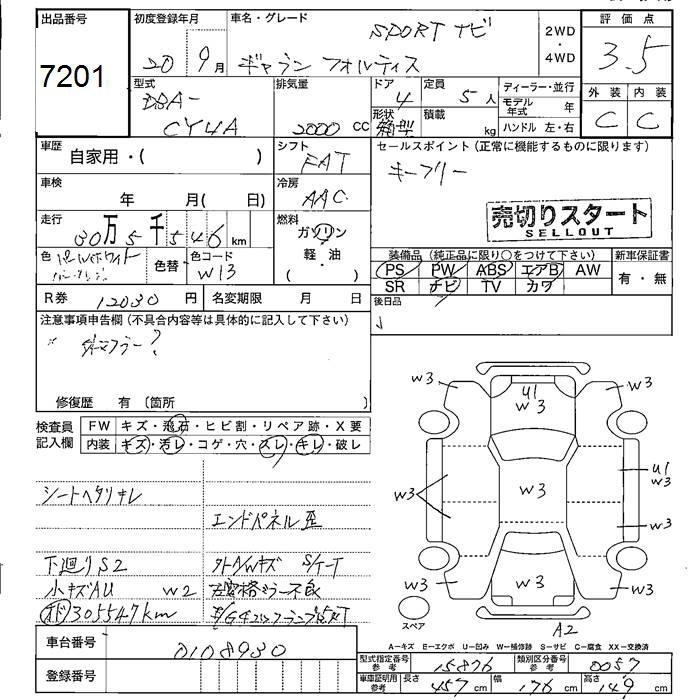 出品番号
7201
初度登録年月
20 9月
車名・グレード
SPORT ナビ
ギャラン フォルティス
2WD
・
4WD
評価点
3.5
外装 内装
C C
型式
DBA-
CY4A
排気量
2000 cc
ドア 4
形状 箱型
定員 5人
積載 kg
ディーラー・並行
モデル年式 年
ハンドル 左・右
車歴 自家用・( )
シフト
FAT
セールスポイント(正常に機能するものに限ります)
キーフリー
車検 年 月( 日)
冷房
AAC
売切りスタート
SELLOUT
走行
30万5千546km
燃料
ガソリン
軽・油
・( )
色
色替
色コード
W13
装備品(純正品に限り○をつけて下さい)
PS PW ABS エアB AW
SR ナビ TV カワ
新車保証書
有・無
R券 12030円 名変期限 月 日
後日品
注意事項申告欄(不具合内容等は具体的に記入して下さい)
修復歴 有〔箇所 〕
検査員記入欄
FW キズ・飛石・ヒビ割・リペア跡・X要
内装 キズ・汚レ・コゲ・穴・スレ・キレ・破レ
シートヘタリキレ
エンドパネル歪
下廻りS2 外A/Wキズ
小キズAU W2
305547km
車台番号 0108930
登録番号
W3 U1 W3 W3
W3 W3 U1 W3
W3
W3 W3 W3
スペア
A2
A-キズ E-エクボ U-凹み W-補修跡 S-サビ C-腐食 XX-交換済
型式指定番号参考 15876 類別区分番号参考 0057
車庫証明用参考 長さ 457cm 幅 176cm 高さ 149cm